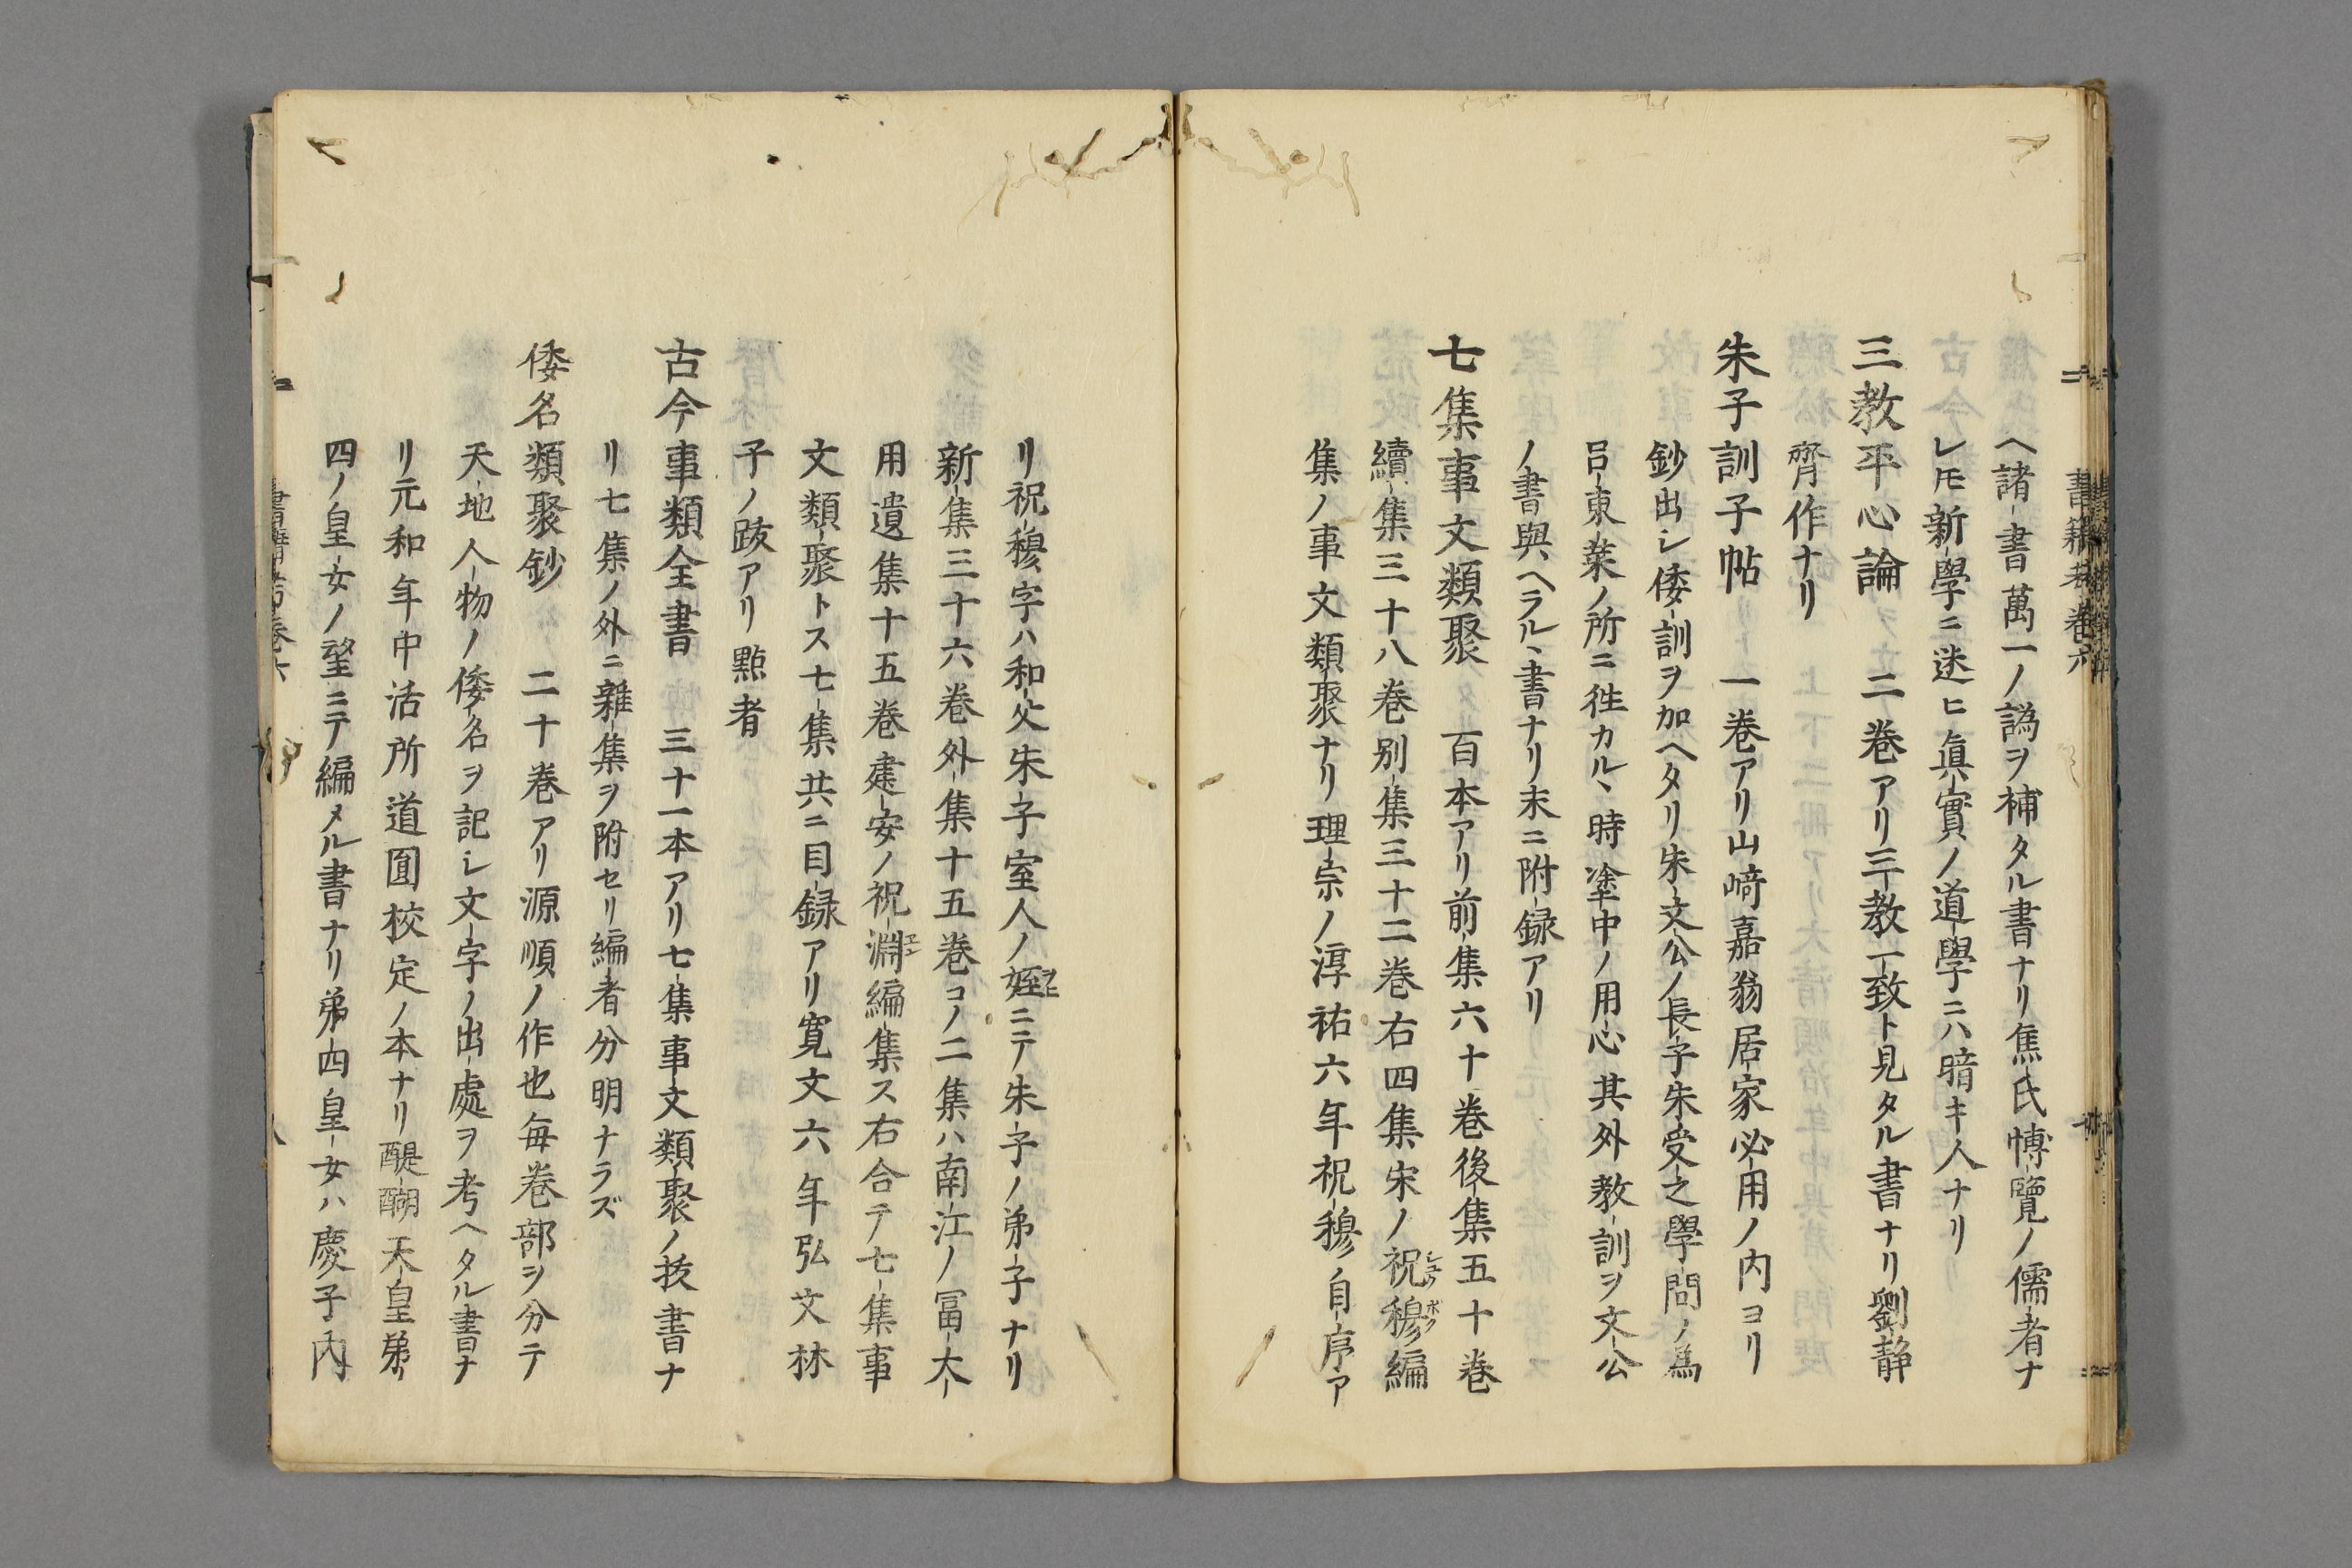 ヘ諸書萬一ノ譌ヲ補タル書ナリ焦氏博覽ノ儒者ナ
レ𪜈新學ニ迷ヒ眞實ノ道學ニハ暗キ人ナリ
三教平心論 二巻アリ三教一致ト見タル書ナリ劉静
齊作ナリ
朱子訓子帖 一巻アリ山﨑嘉翁居家必用ノ内ヨリ
鈔出シ倭訓ヲ加ヘタリ朱文公ノ長子朱受之學問ノ爲
呂東萊ノ所ニ徃カル丶時塗中ノ用心其外教訓ヲ文公
ノ書與ヘラル丶書ナリ末ニ附録アリ
七集事文類聚 百本アリ前集六十巻後集五十巻
續集三十八巻别集三十二巻右四集宋ノ祝穆編
集ノ事文類聚ナリ理宗ノ淳祐六年祝穆ノ自序ア
リ祝穆字ハ和父朱子室人ノ姪ニテ朱子ノ弟子ナリ
新集三十六巻外集十五巻コノ二集ハ南江ノ冨大
用遺集十五巻建安ノ祝淵編集ス右合テ七集事
文類聚トス七集共ニ目録アリ寛文六年弘文林
子ノ跋アリ㸃者
古今事類全書 三十一本アリ七集事文類聚ノ抜書ナ
リ七集ノ外ニ雜集ヲ附セリ編者分明ナラズ
倭名類聚鈔 二十巻アリ源順ノ作也毎巻部ヲ分テ
天地人物ノ倭名ヲ記シ文字ノ出處ヲ考ヘタル書ナ
リ元和年中活所道圓校定ノ本ナリ醍醐天皇第
四ノ皇女ノ望ニテ編メル書ナリ弟四皇女ハ慶子内